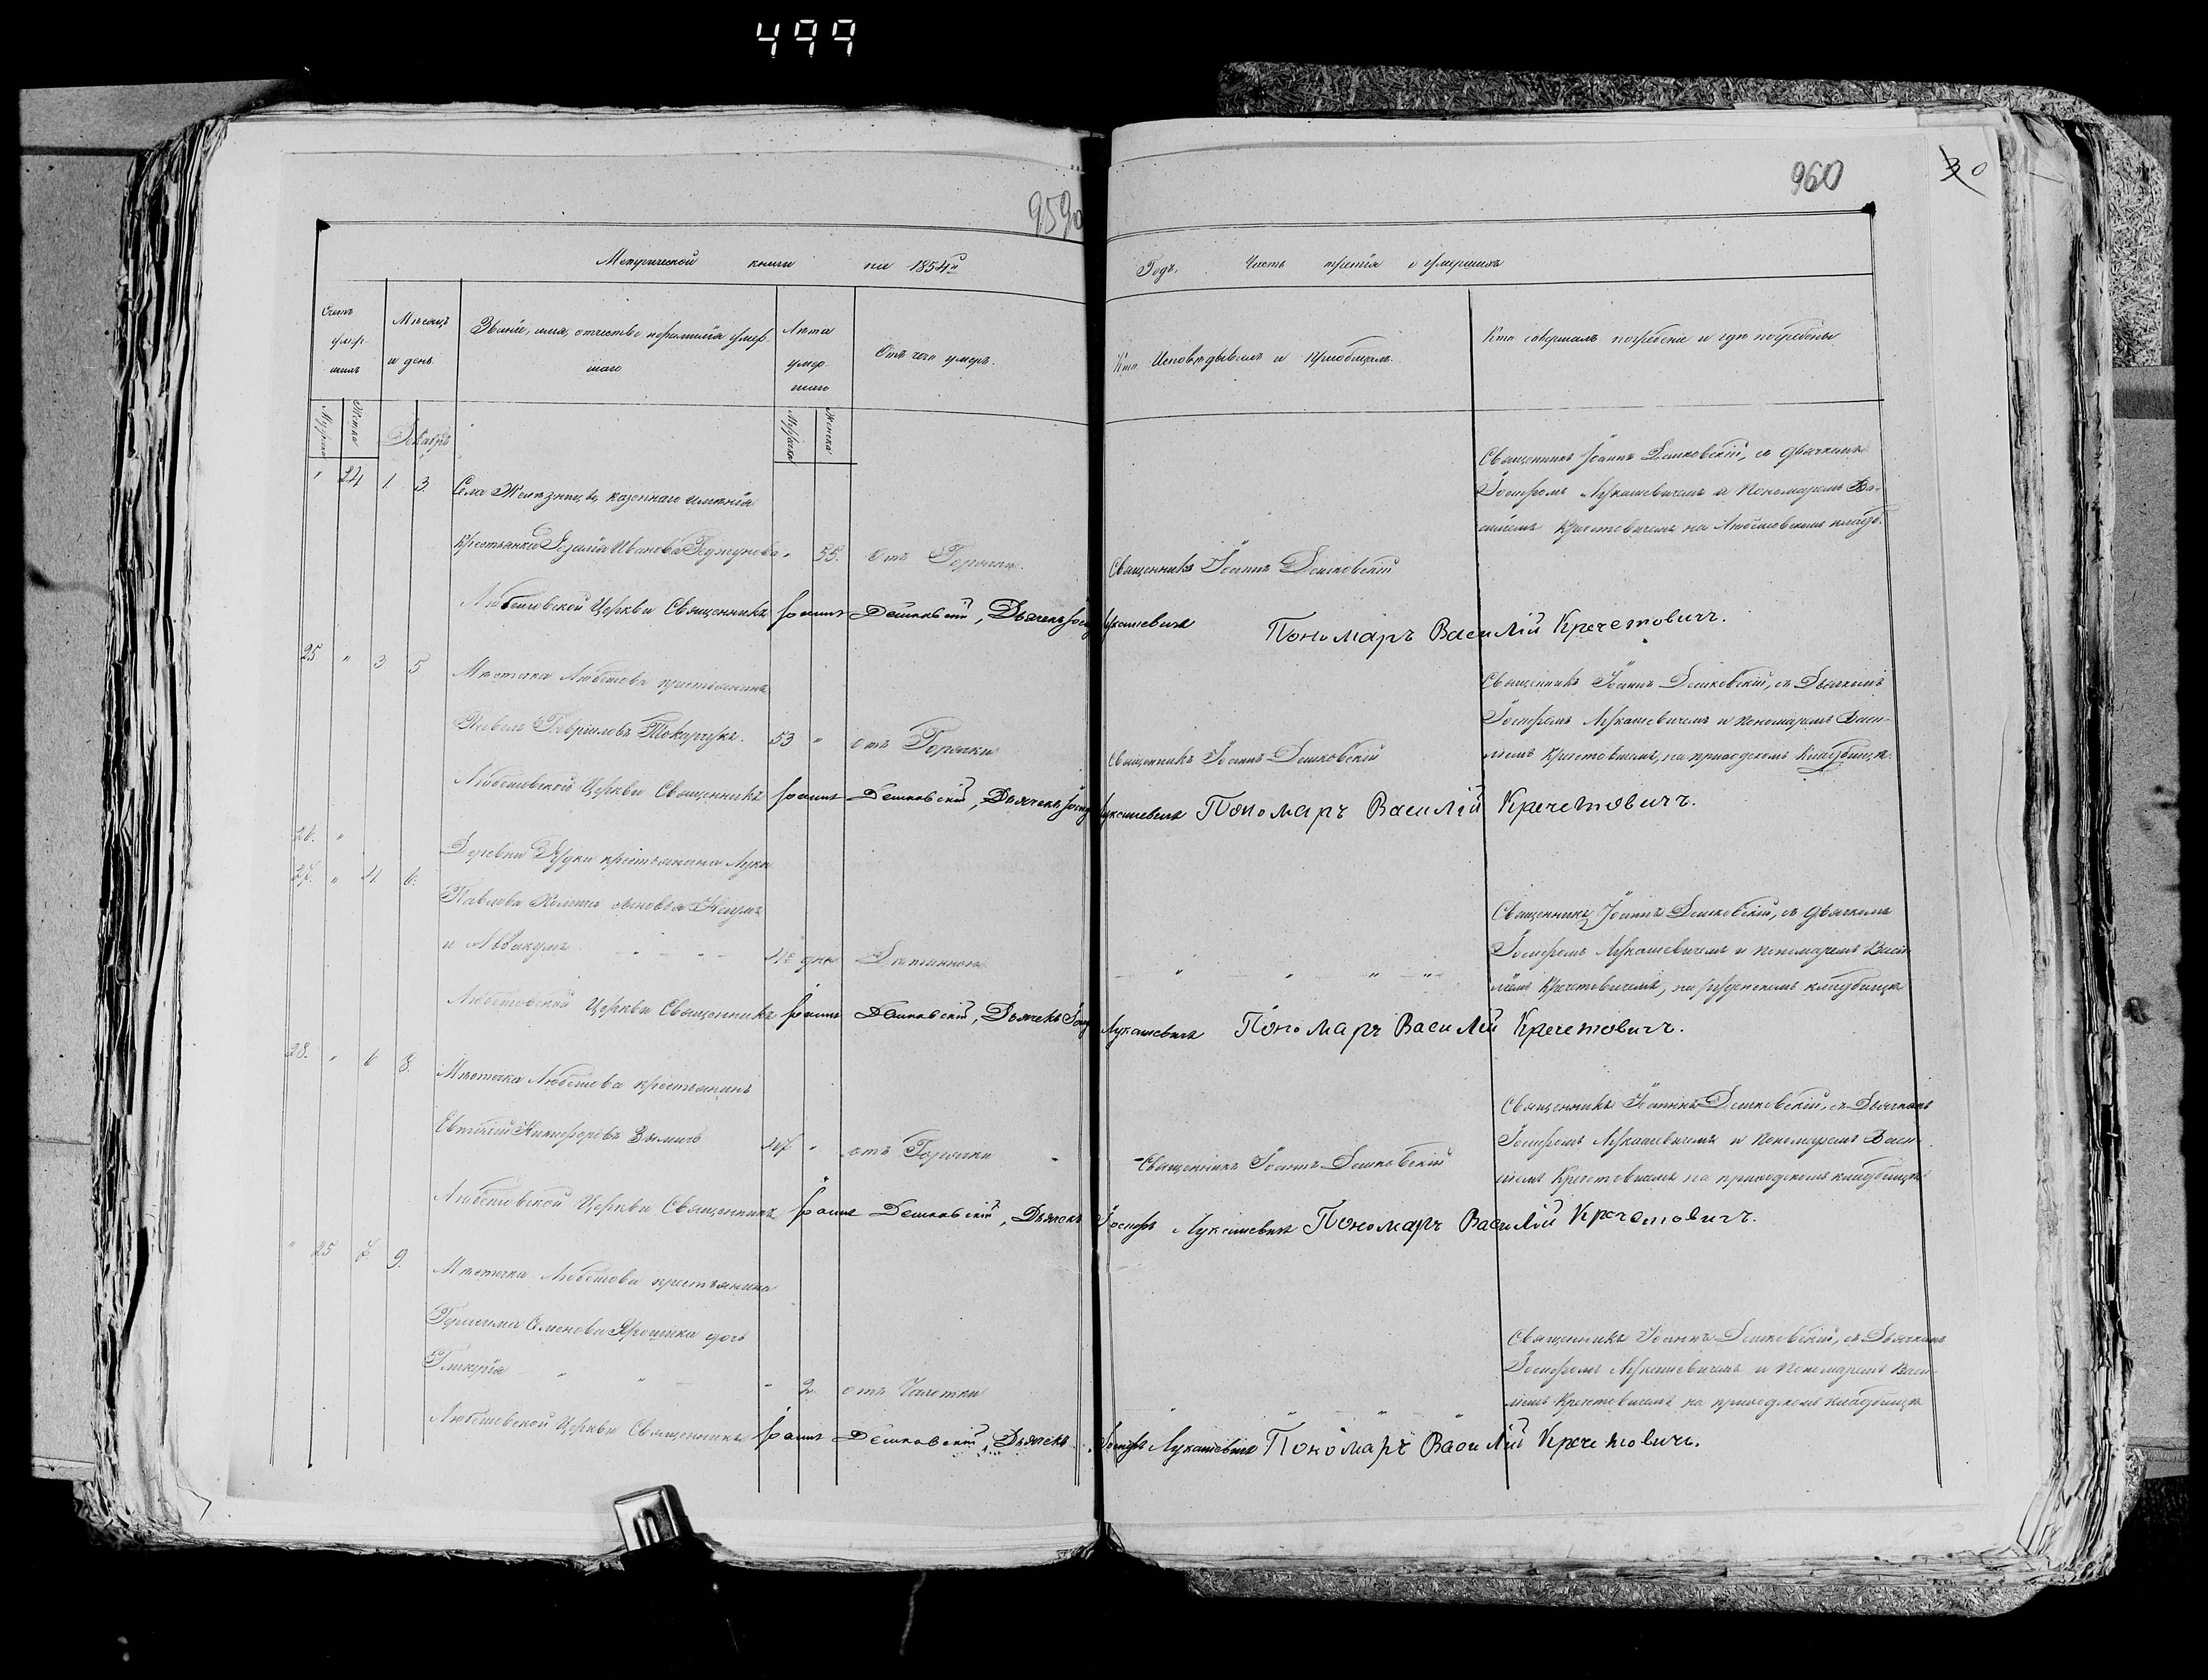 499
959о
960
30
Метрической книги на 1854й
Годъ, Часть третія о умершихъ
Счетъ умершихъ
Мѣсяцъ и день
Званіе, имя, отчество и фамилія умершаго
Лѣта умершаго
Отъ чего умеръ.
Кто Исповѣдывалъ и пріобщалъ.
Кто совершалъ погребеніе и гдѣ погребены
Мужска
Женска
Декабрь
Мужска
Женска
" 24 1. 3. Села Желѣзницъ, казеннаго имѣнія
крестьянка Розалія Иванова " 55. Отъ Горячки.
Священникъ Іоаннъ Дешковскій
Священникъ Іоаннъ Дешковскій, съ дьячкомъ
Іосифомъ Лукашевичемъ и Пономаремъ Ва-
силіемъ Кречетовичемъ на Любешовскомъ кладб.
Любешовской Церкви Священникъ Іоаннъ Дешковскій, Дьячекъ Іосифъ Лукашевичъ Пономарь Василій Кречетовичъ.
25 " 3 5 Мѣстечка Любешова крестьянинъ
Павелъ Гавриловъ Токарчукъ. 53 " отъ Горячки
Священникъ Іоаннъ Дешковскій
Священникъ Іоаннъ Дешковскій, съ Дьячкомъ
Іосифомъ Лукашевичемъ и Пономаремъ Васи-
ліемъ Кречетовичемъ, на приходскомъ Кладбищѣ.
Любешовской Церкви Священникъ Іоаннъ Дешковскій, Дьячекъ Іосифъ Лукашевичъ Пономарь Василій Кречетовичъ.
26. "
Деревни крестьянина Луки
27. " 4. 6. Павлова сыновья Наумъ
и Аввакумъ дня
Священникъ Іоаннъ Дешковскій, съ дьячкомъ
Іосифомъ Лукашевичемъ и пономаремъ Васи-
ліемъ Кречетовичемъ, на кладбищѣ
Любешовской Церкви Священникъ Іоаннъ Дешковскій, Дьячекъ Іосифъ Лукашевичъ Пономарь Василій Кречетовичъ.
28. " 6 8. Мѣстечка Любешова крестьянинъ
Евтихій Никифоровъ 47 " отъ Горячки
Священникъ Іоаннъ Дешковскій
Священникъ Іоаннъ Дешковскій, съ Дьячкомъ
Іосифомъ Лукашевичемъ и Пономаремъ Васи-
ліемъ Кречетовичемъ на приходскомъ кладбищѣ
Любешовской Церкви Священникъ Іоаннъ Дешковскій, Дьячекъ Іосифъ Лукашевичъ Пономарь Василій Кречетовичъ.
" 25 7. 9. Мѣстечка Любешова крестьянина
Герасима Семенова дочь
Гликерія " 2. отъ Чахотки
Священникъ Іоаннъ Дешковскій, съ Дьячкомъ
Іосифомъ Лукашевичемъ и Пономаремъ Васи-
ліемъ Кречетовичемъ на приходскомъ кладбищѣ
Любешовской Церкви Священникъ Іоаннъ Дешковскій, Дьячекъ Іосифъ Лукашевичъ Пономарь Василій Кречетовичъ.